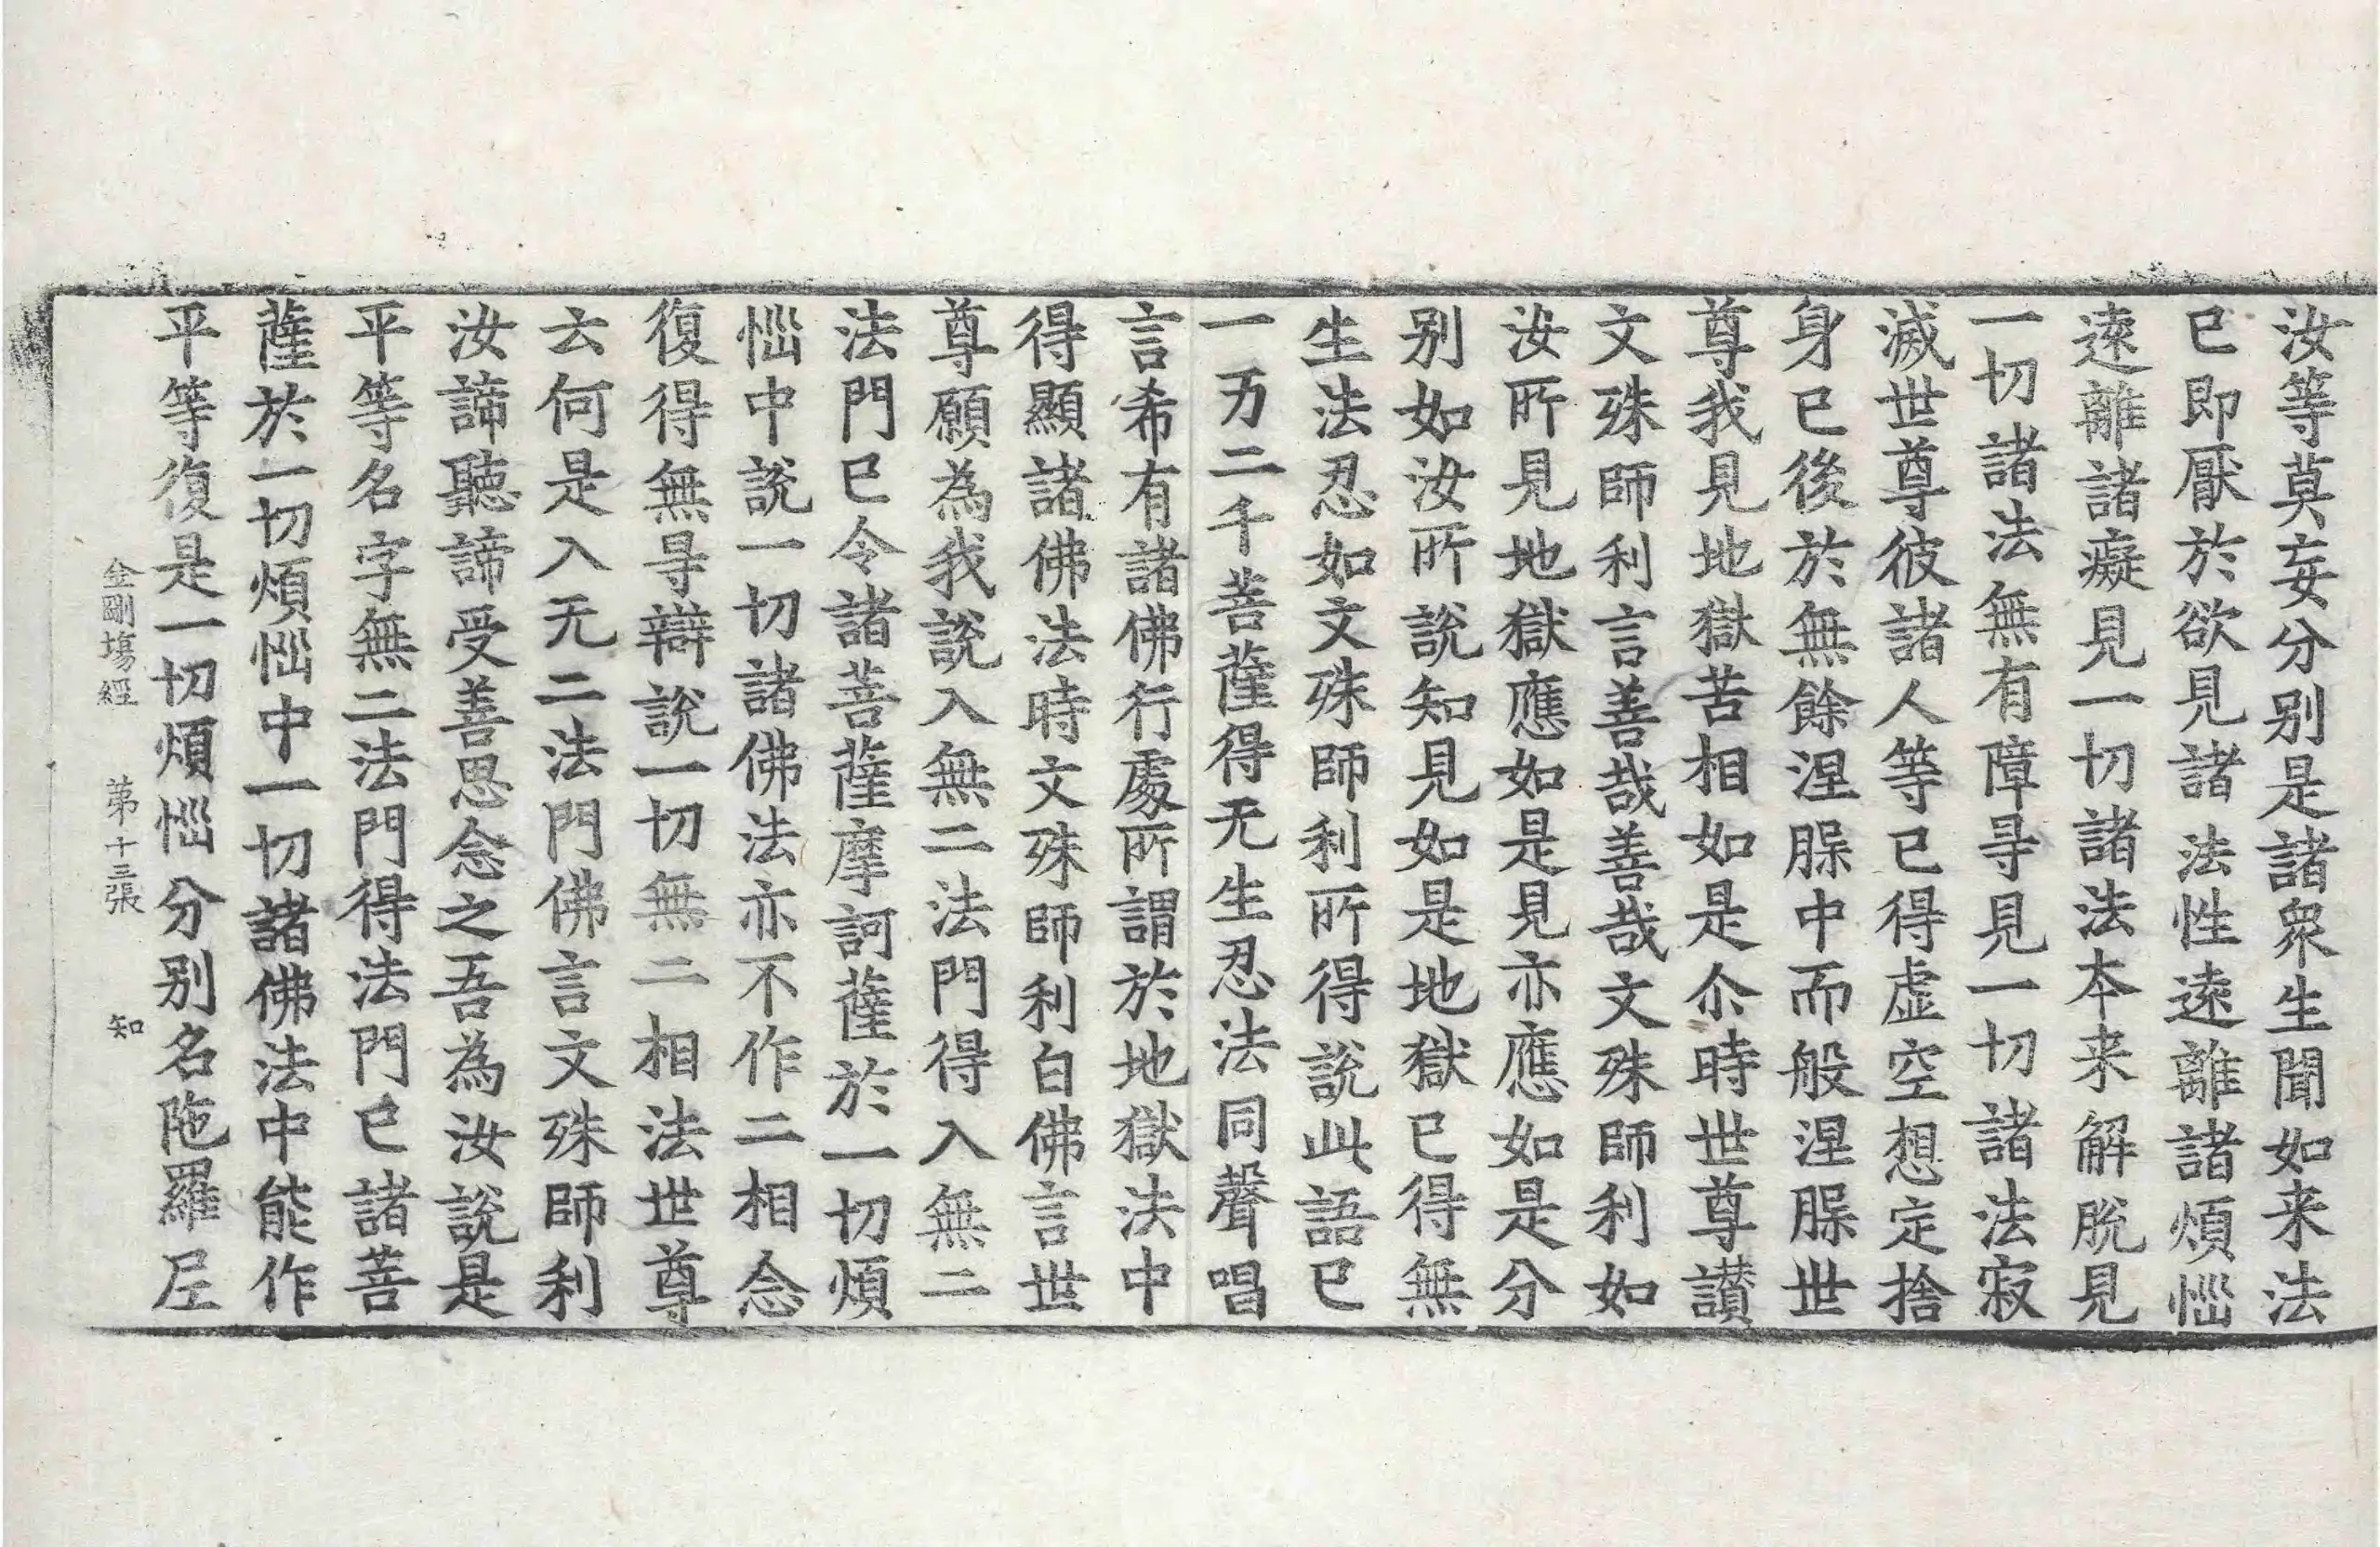 汝等莫妄分别是諸衆生聞如来法
已即厭於欲見諸法性遠離諸煩惱
遠離諸癡見一切諸法本来解脫見
一切諸法無有障㝵見一切諸法寂
滅世尊彼諸人等已得虛空想定捨
身已後於無餘涅槃中而般涅槃世
尊我見地獄苦相如是尒時世尊讃
文殊師利言善哉善哉文殊師利如
汝所見地獄應如是見亦應如是分
别如汝所說知見如是地獄已得無
生法忍如文殊師利所得說此語已
一万二千菩薩得无生忍法同聲唱
言希有諸佛行處所謂於地獄法中
得顯諸佛法時文殊師利白佛言世
尊願為我說入無二法門得入無二
法門已令諸菩薩摩訶薩於一切煩
惱中說一切諸佛法亦不作二相念
復得無㝵辯說一切無二相法世尊
云何是入无二法門佛言文殊師利
汝諦聽諦受善思念之吾為汝說是
平等名字無二法門得法門已諸菩
薩於一切煩惱中一切諸佛法中能作
平等復是一切煩惱分别名陁羅尼
金剛塲經 第十三張 知